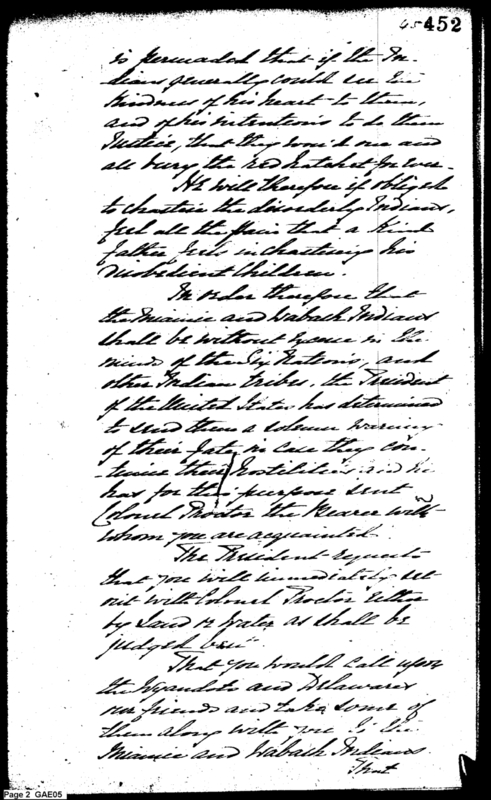 45 452
is persuaded that if the In-
dians generally could see the
kindness of his heart to them,
and of his intentions to do them
Justice, that they wou'd one and
all bury the red hatchet for ever.
He will therefore if obliged
to chastise the disorderly Indians,
feel all the pain that a kind
father feels in chastising his
disobedient Children.
In order therefore that
the Miamie and Wabash Indians
shall be without excuse in the
minds of the Six Nations, and
other Indian tribes, the President
of the United States has determined
to send them a solemn warning
of their fate in case they con-
-tinue their hostilities and he
has for this purpose sent
Colonel Proctor the Bearer with
whom you are acquainted.
The President requests
that you will immediately set
out with Colonel Proctor either
by Land or Water as shall be
judged best.
That you would call upon
the Wyandots and Delawares
our friends and take some of
them along with you to the
Miamie and Wabash Indians
That
Page 2 GAE05